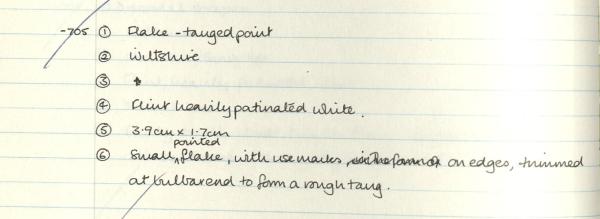 -705 ① Flake - tanged point
② Wiltshire
③
④ Flint heavily patinated white.
⑤ 3.9cm x 1.7cm
⑥ Small pointed flake, with use marks, on edges, trimmed
at bulbar end to form a rough tang.